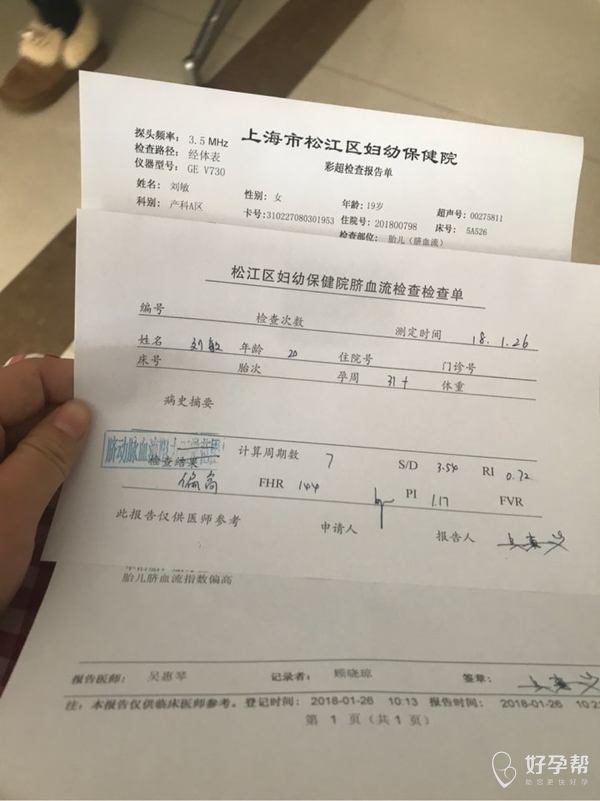 上海市松江区妇幼保健院
彩超检查报告单
探头频率: 3.5 MHz
检查路径: 经体表
仪器型号: GE V730
姓名: 刘敏 性别: 女 年龄: 19岁 超声号: 00275811
科别: 产科A区 卡号:310227080301953 住院号: 201800798 床号: 5A526
检查部位: 胎儿(脐血流)
松江区妇幼保健院脐血流检查检查单
编号 检查次数 测定时间 18.1.26
姓名 刘敏 年龄 20 住院号 门诊号
床号 胎次 孕周 31+ 体重
病史摘要
脐动脉血流
检查结果 计算周期数 7 S/D 3.54 RI 0.72
偏高 FHR 144 PI 1.17 FVR
此报告仅供医师参考 申请人 报告人
胎儿脐血流指数偏高
报告医师: 吴惠琴 记录者: 顾晓琼 签章:
注: 本报告仅供临床医师参考。登记时间: 2018-01-26 10:13 报告时间: 2018-01-26
第 1 页(共 1 页)
好孕帮
助您更快好孕